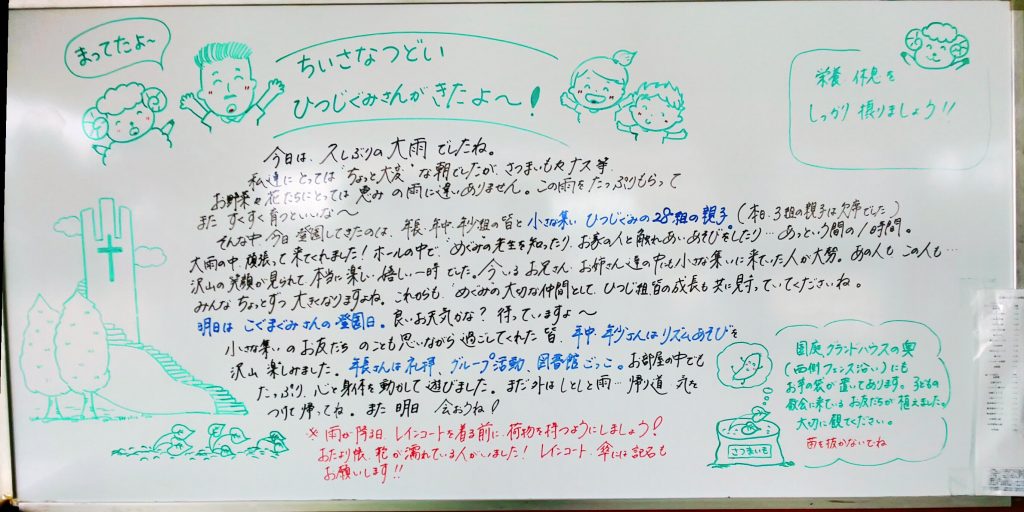 まってたよ~
ちいさなつどい
ひつじぐみさんがきたよ~!
栄養 休息を
しっかり摂りましょう!!
今日は、久しぶりの大雨でしたね。
私達にとっては"ちょっと大変"な朝でしたが、さつまいもやナス等
お野菜や花たちにとっては恵みの雨に違いありません。この雨をたっぷりもらって
また すくすく育つといいな~
そんな中、今日登園してきたのは、年長・年中・年少組の皆と小さな集い ひつじぐみの28組の親子(本日、3組の親子は欠席でした)
大雨の中、頑張って来てくれました!ホールの中で、めぐみの先生を知ったり、お家の人と触れあいあそびをしたり…あっという間の1時間。
沢山の笑顔が見られて、本当に楽しい嬉しい一時でした。今いるお兄さん、お姉さん達の中にも小さな集いに来ていた人が大勢。あの人も この人も…
みんな ちょっとずつ 大きくなりますよね。これからも、"めぐみ"の大切な仲間として、ひつじ組皆の成長も共に見守っていてくださいね。
明日は こぐまぐみさんの登園日。良いお天気かな? 待っていますよ~
小さな集いのお友だちのことも思いながら過ごしてくれた皆、年中・年少さんはリズムあそびを
沢山楽しみました。年長さんは礼拝、グループ活動、図書館ごっこ。お部屋の中でも
たっぷり、心と身体を動かして遊びました。まだ外はしとしと雨…帰り道 気を
つけて帰ってね。また 明日 会おうね!
※ 雨が降る日、レインコートを着る前に、荷物を持つようにしましょう!
おたより帳、靴が濡れている人がいました!レインコート、傘には記名も
お願いします!!
園庭、グランドハウスの奥
(西側フェンス沿い)にも
お芋の袋が置いてあります。子どもの
教会に来ているお友だちが植えました。
大切に観てください。
苗を抜かないでね
さつまいも